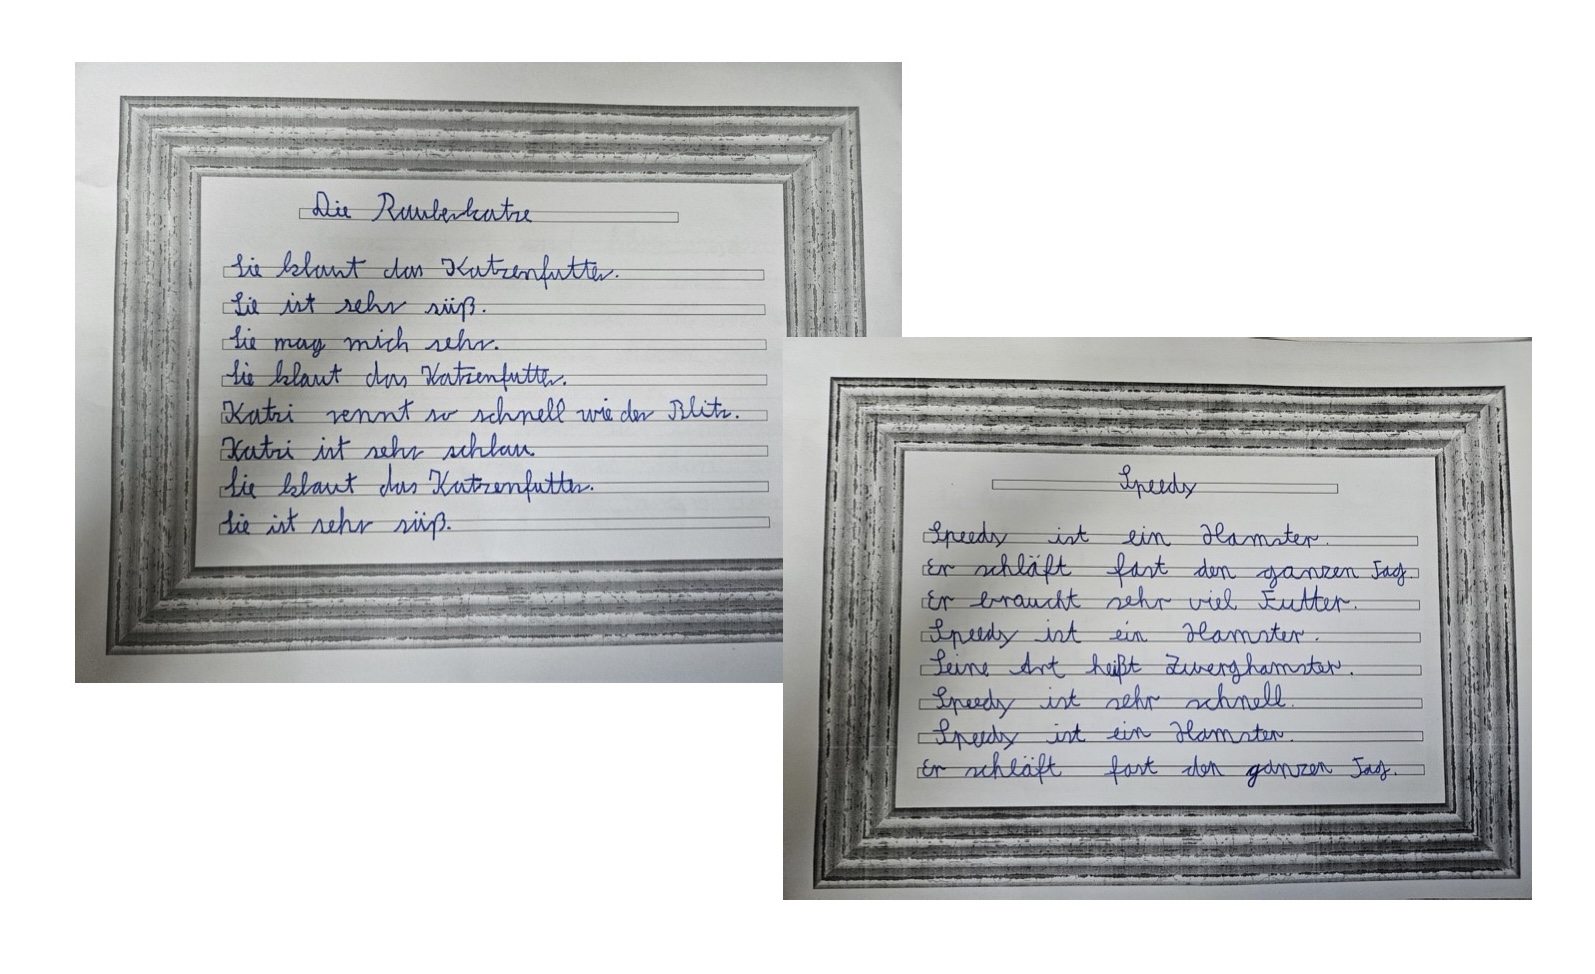 Die Rauberkatze
Sie klaut das Katzenfutter.
Sie ist sehr süß.
Sie mag mich sehr.
Sie klaut das Katzenfutter.
Katzi rennt so schnell wie der Blitz.
Katzi ist sehr schlau
Sie klaut das Katzenfutter.
Sie ist sehr süß.
Speedy
Speedy ist ein Hamster.
Er schläft fast den ganzen Tag.
Er braucht sehr viel Futter.
Speedy ist ein Hamster.
Seine Art heißt Zwerghamster.
Speedy ist sehr schnell.
Speedy ist ein Hamster.
Er schläft fast den ganzen Tag.